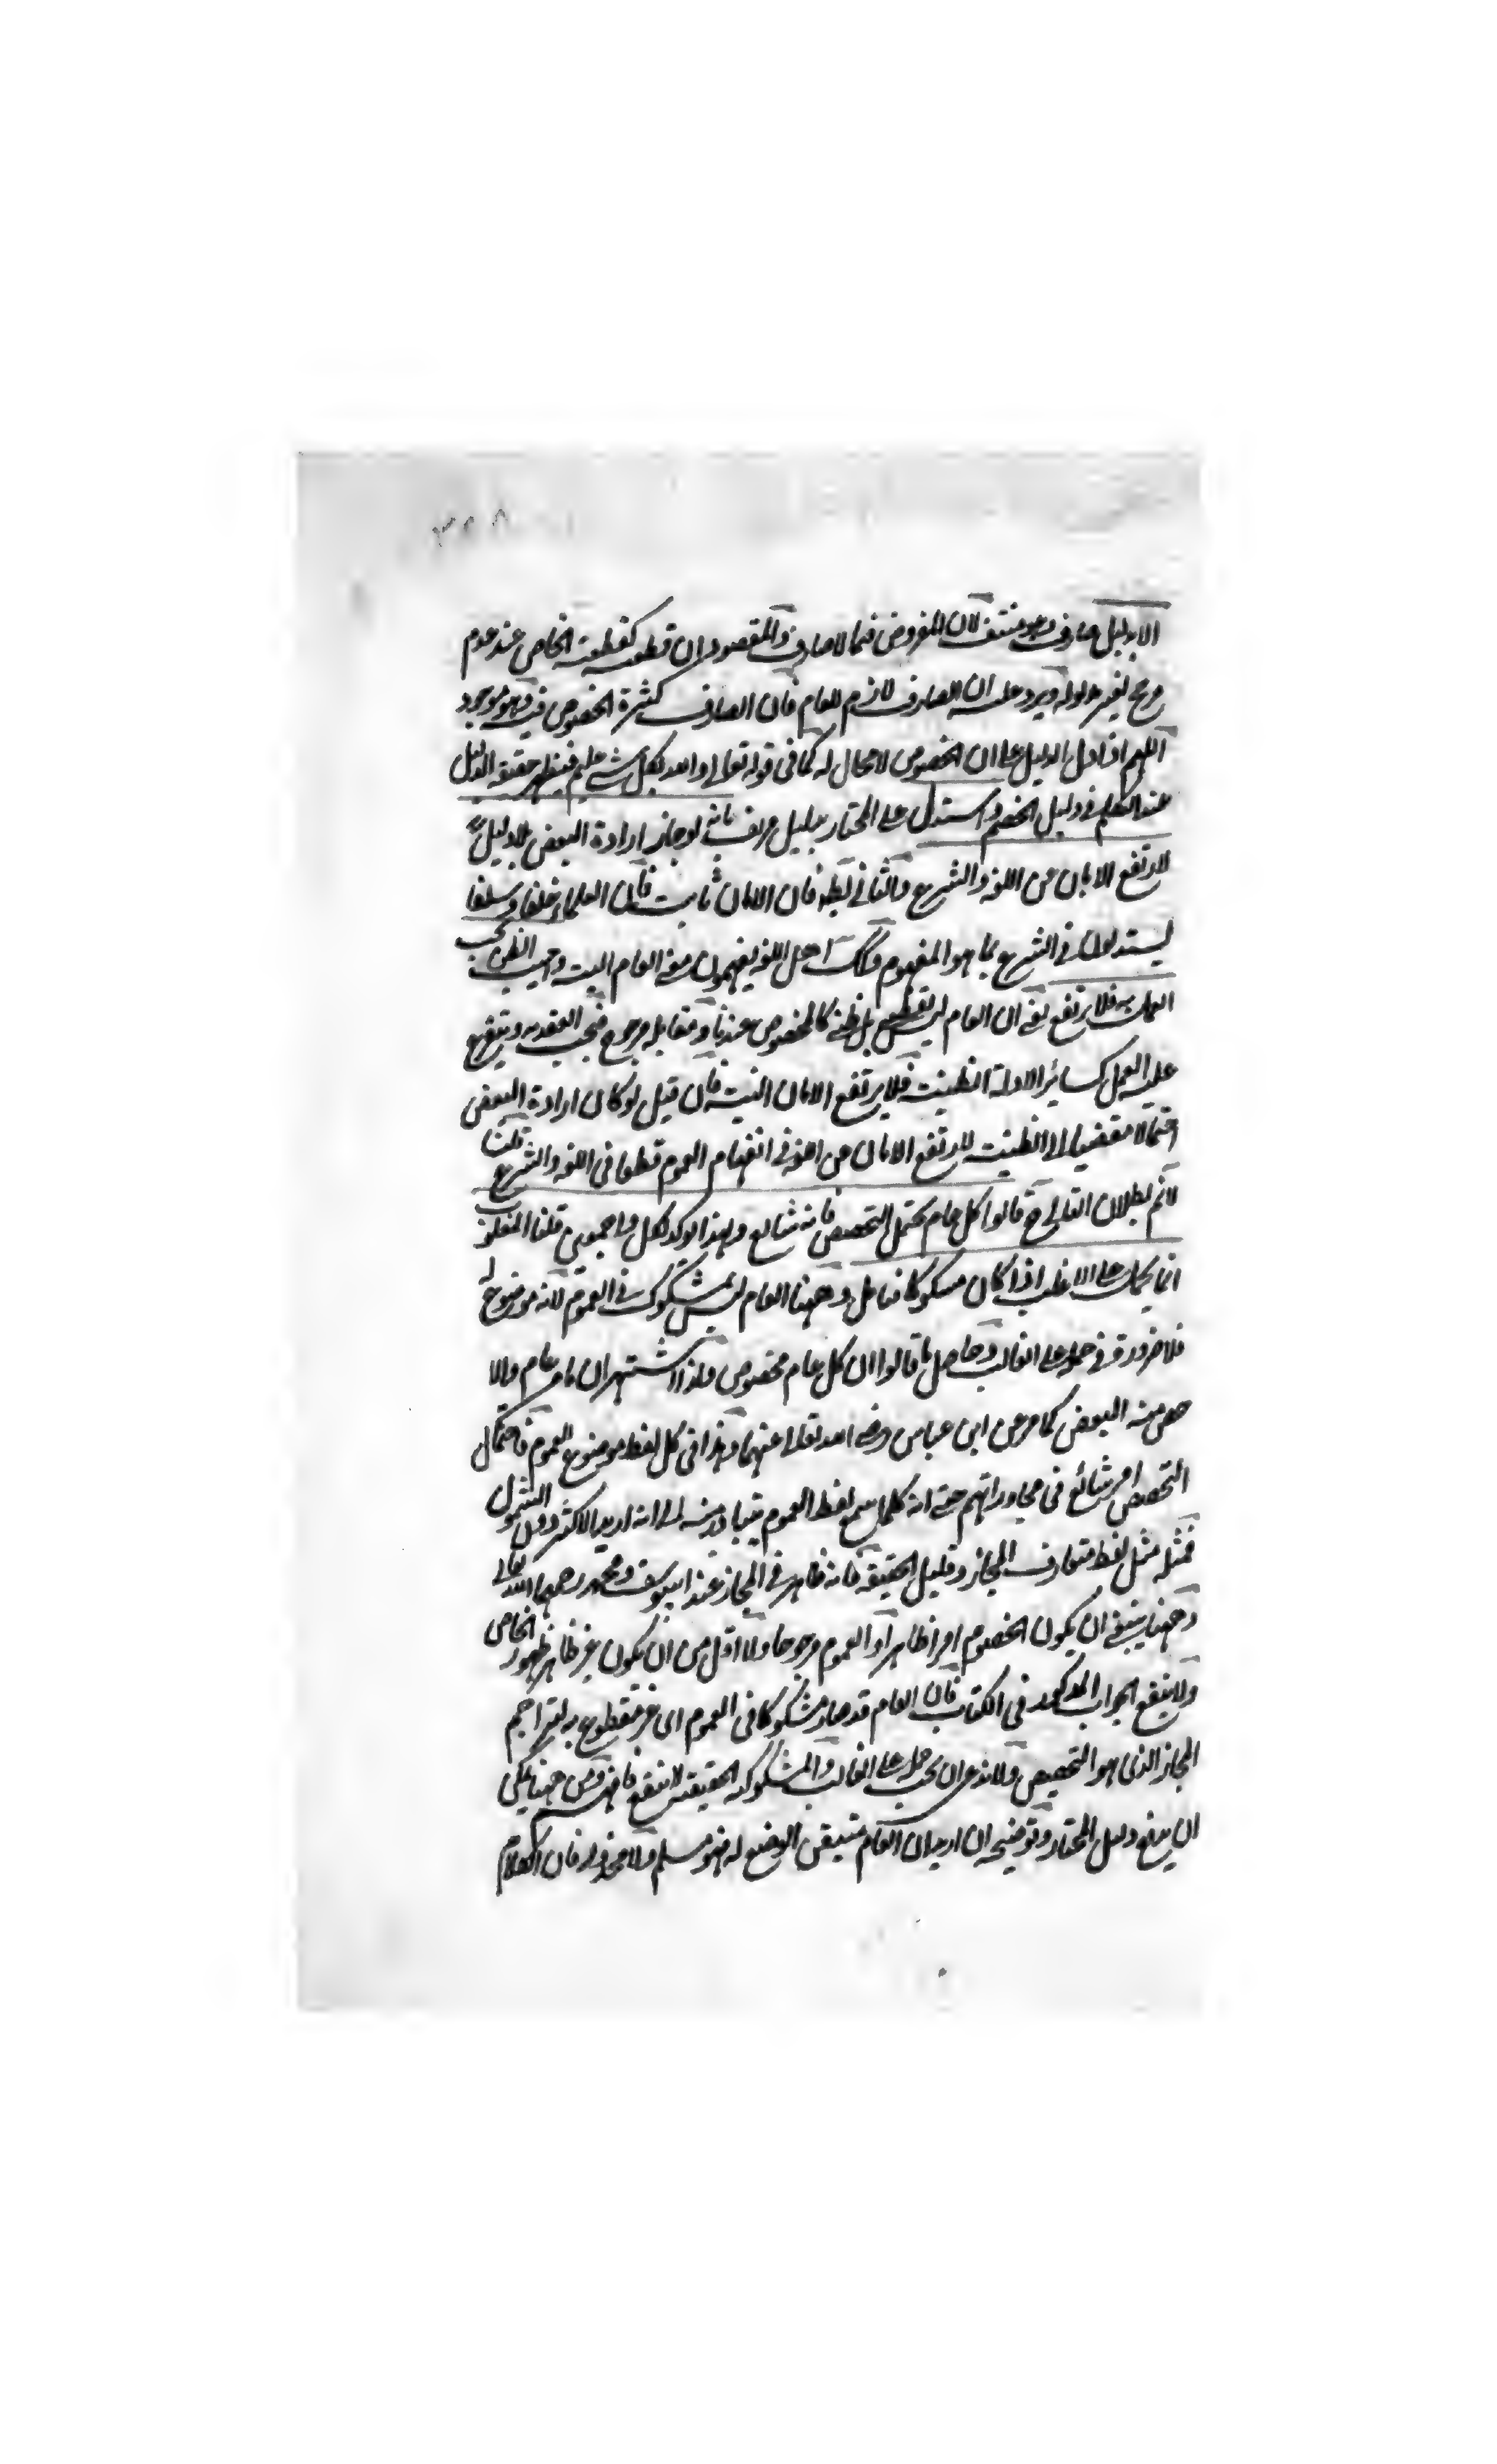 ٣٥٨
الا بدليل صارف وهو منتف لان المفروض فيما لا صارف والمقصود ان قطعيته كقطعية الخاص عند عدم
مرجح لغير مدلوله ويرد عليه ان الصارف لازم للعام فان الصارف كثرة الخصوص فيه وهو موجود
اللهم اذا دل الدليل على ان الخصوص لا مجال له كما في قوله تعالى والله بكل شيء عليم فيظهر حقيقة الدليل
عند التكلم في دليل الخصم واستدل على المختار بدليل مزيف بانه لو جاز ارادة البعض بلا دليل
لارتفع الامان عن اللغة والشرع والثاني بط فان الامان ثابت فان العلماء خلفا وسلفا
يستدلون في الشرع بما هو المفهوم وكك اهل اللغة يفهمون من العام البتة واجيب الظن يجب
العمل به فلا يرتفع يعني ان العام ليس بقطعي بل ظني كالمخصوص عندنا ومقابله مرجوح فيجب العقد به ويتفرع
عليه العمل كسائر الادلة الظنية فلا يرتفع الامان البتة فان قيل لو كان ارادة البعض
احتمالا مفضيا الى الظنية لارتفع الامان عن اللغة في انفهام العموم قطعا في اللغة والشرع قلنا
لا نم بطلان التالي قالوا كل عام يحتمل التخصيص فانه شايع ولهذا يوكد بكل واجمعين قلنا المغلوب
انما يحمل على الاغلب اذا كان مشكوكا فتامل وههنا العام ليس بمشكوك في العموم لانه موضوع له
فلا ضرورة في حمله على الغالب وحاصل ما قالوا ان كل عام مخصوص ولذا اشتهر ان ما من عام والا
خص منه البعض كما مر عن ابن عباس رضي الله تعالى عنهما وهذا في كل لفظ موضوع للعموم فاحتمال
التخصيص امر شائع في محاوراتهم حتى انه كلما سمع لفظ العموم يتبادر منه الى انه اريد الاكثر دون الشمول
فمثله مثل لفظ متعارف المجاز وقليل الحقيقة فانه ظاهر في المجاز عند ابي يوسف ومحمد رحمهما الله تعالى
وههنا ينبغي ان يكون الخصوص امرا ظاهرا والعموم مرجوحا ولا اقل من ان يكون غير ظاهر ظهور الخاص
ولا ينفع الجواب المذكور في الكتاب فان العام قد صار مشكوكا في العموم اى غير مقطوع به لتزاحم
المجاز الذى هو التخصيص ولا ندعي ان يجب حمله على الغالب والمشكوكية الحقيقية لا تنفع فافهم ومن ههنا يمكن
ان يمنع دليل المختار وتوضيحه ان اريد ان العام متيقن الوضع له فهو مسلم ولا محذور فان الكلام